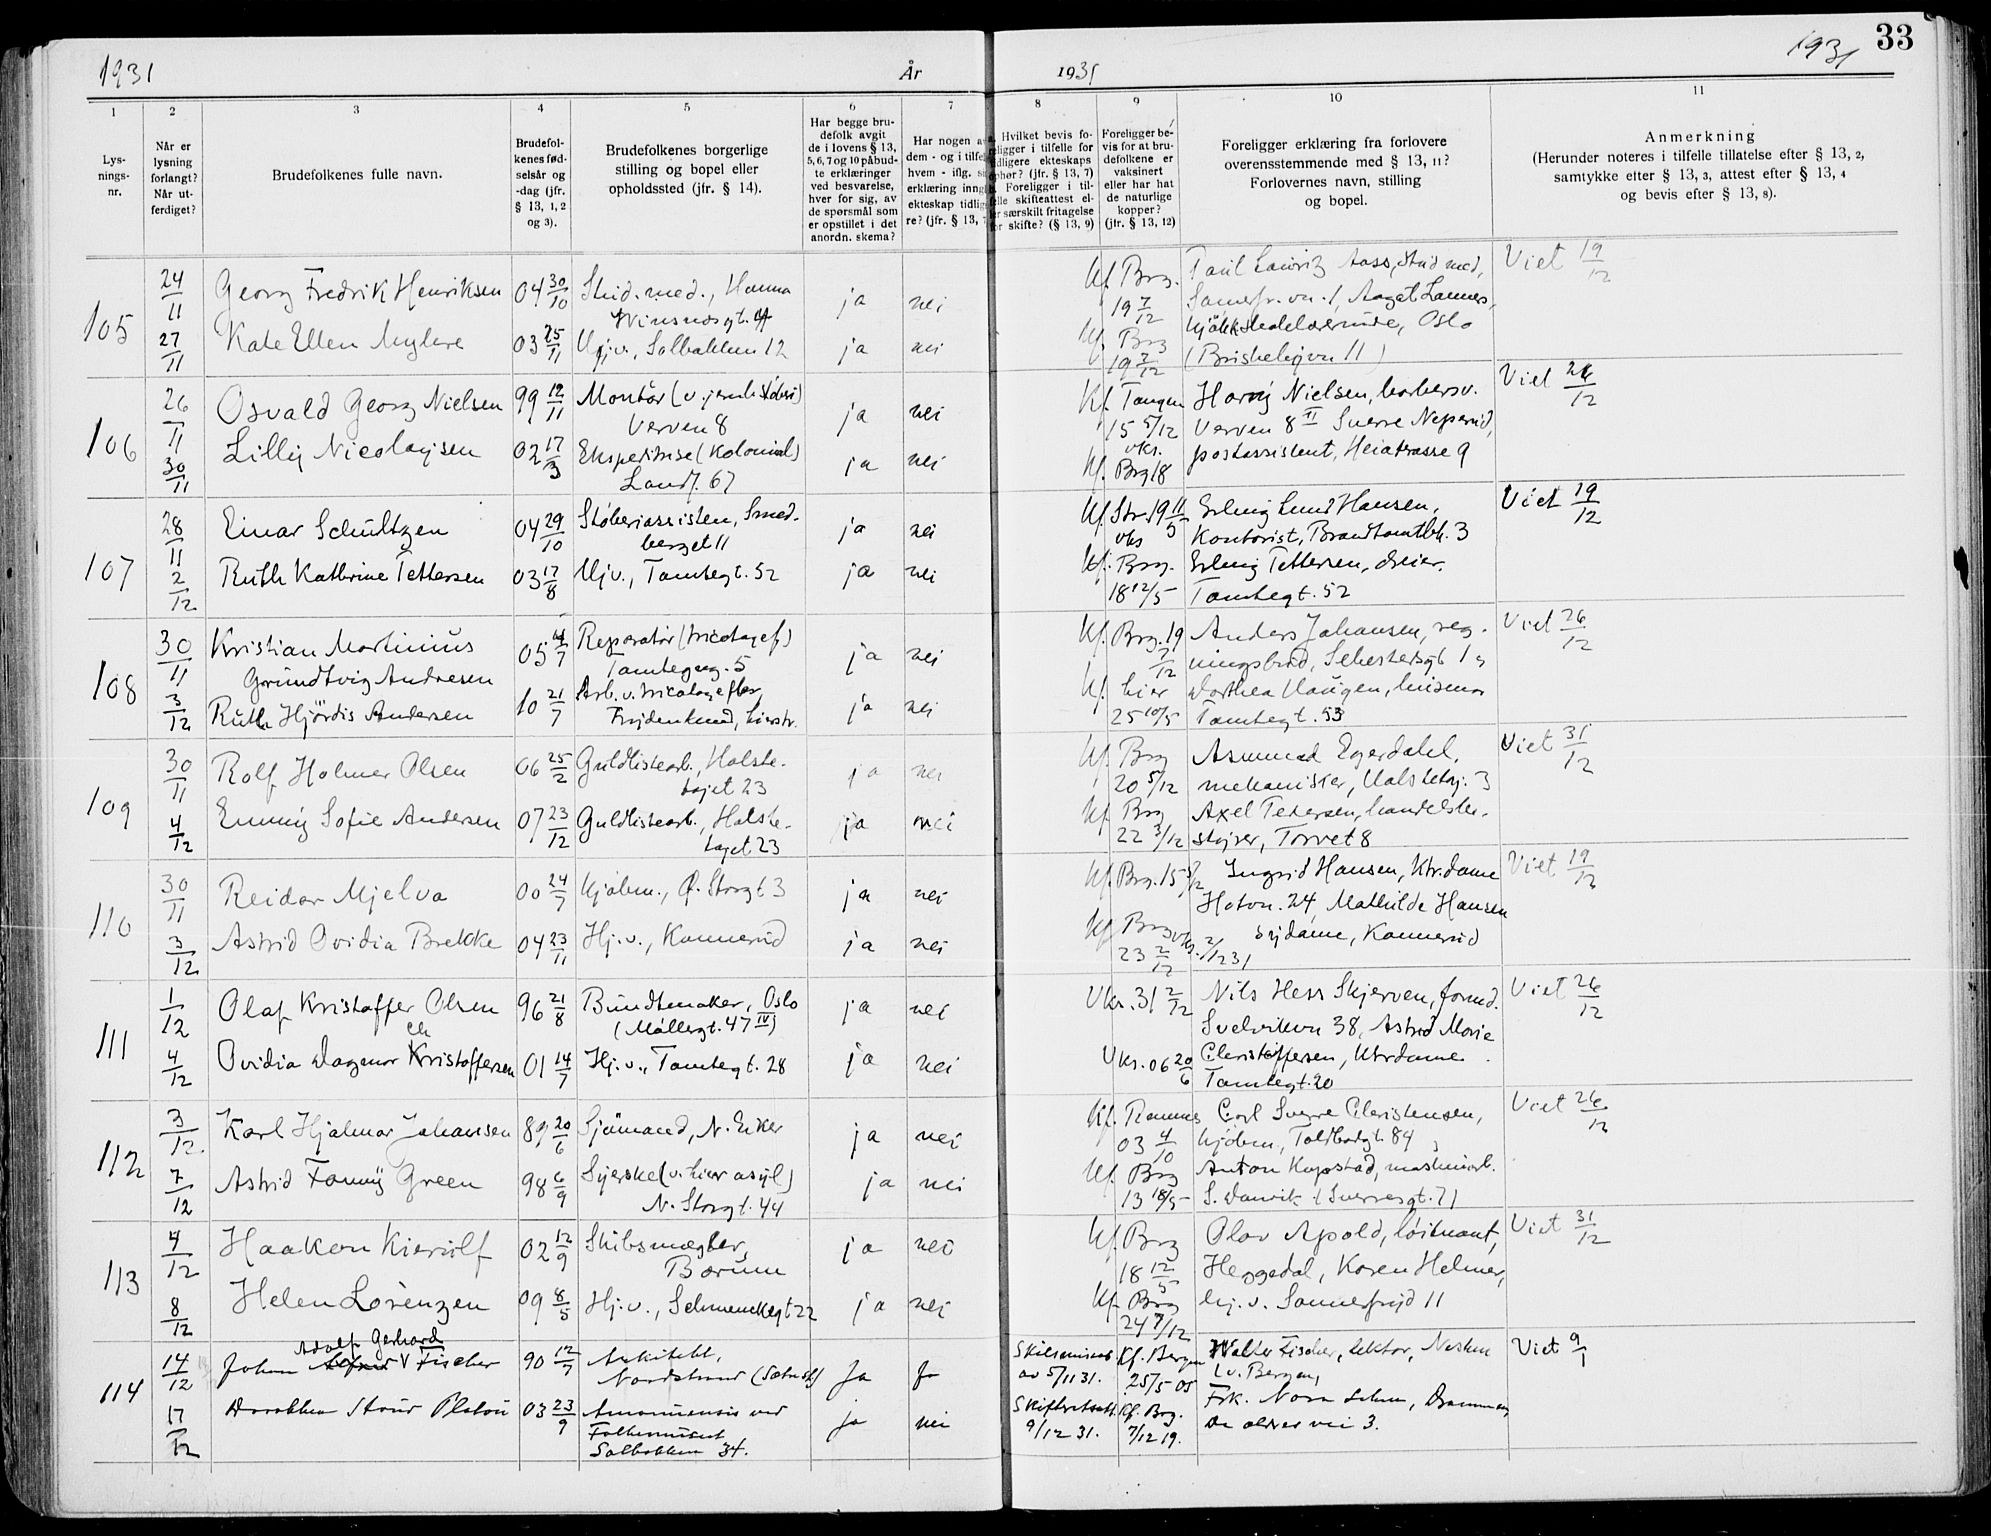 1931
År
1931
1931
33
1
2
3
4
5
6
7
8
9
10
11
Lys-
nings-
nr.
Når er
lysning
forlangt?
Når ut-
ferdiget?
Brudefolkenes fulle navn.
Brudefol-
kenes fød-
selsår og
-dag (jfr.
§ 13, 1, 2
og 3).
Brudefolkenes borgerlige
stilling og bopel eller
opholdssted (jfr. § 14).
Har begge bru-
defolk avgit
de i lovens § 13,
5, 6, 7 og 10 påbud-
te erklæringer
ved besvarelse,
hver for sig, av
de spørsmål som
er opstillet i det
anordn. skema?
Har nogen a
dem - og i tilfe
hvem - iflg. s
erklæring inng
ekteskap tidlig
re? (jfr. § 13, 7
Hvilket bevis fo-
religger i tilfelle for
tidligere ekteskaps
ophør? (jfr. § 13, 7)
Foreligger i til-
felle skifteattest el-
ler særskilt fritagelse
for skifte? (§ 13, 9)
Foreligger be-
vis for at bru-
defolkene er
vaksinert
eller har hat
de naturlige
kopper?
(jfr. § 13, 12)
Foreligger erklæring fra forlovere
overensstemmende med § 13, 11?
Forlovernes navn, stilling
og bopel.
Anmerkning
(Herunder noteres i tilfelle tillatelse efter § 13, 2,
samtykke efter § 13, 3, attest efter § 13, 4
og bevis efter § 13, 8).
105
24/11
27/11
Georg Fredrik Henriksen
04 30/10
Stud. med., Hanna
Winsnesgt.
ja
nei
Kf. Brg.
19 7/12
Kate Ellen Myhre
03 25/11
Hj.v., Solbakken 12
ja
nei
Kf. Brg
19 7/12
Paul Lauritz Aass, stud med,
Oslo
11)
Viet 19/12
106
26/11
30/11
Osvald Georg Nielsen
99 12/11
Montör
Verven 8
ja
nei
Kf. Tangen
15 5/12
vks.
Lilly Nicolaysen
02 17/3
Ekspeditrise (Kolonial)
Landf. 67
ja
nei
Kf. Brg 18
Harry Nielsen,
Verven 8 II Sverre Neperud,
postassistent, Heiaterasse 9
Viet 26/12
107
28/11
2/12
Einar Schultzen
04 29/10
Støberiassisten, Smed-
berget 11
ja
nei
Kf. Str. 19 11/5
vks
Ruth Kathrine Pettersen
03 17/8
Hj.v., Tomtegt. 52
ja
nei
Kf. Brg.
18 12/5
Erling Lund Hansen,
Kontorist, Brandtomtbk. 3
Erling Pettersen, dreier,
Tomtegt. 52
Viet 19/12
108
30/11
3/12
Kristian Martinius
Grundtvig Andresen
05 4/7
Reparatør (tricotagef)
5
ja
nei
Kf. Brg. 19
7/12
Ruth Hjördis Andersen
10 21/7
Arb. v. tricotagefbr,
Frydenlund, Lierstr.
ja
nei
Kf. hier
25 10/5
Anders Johansen, reg-
ningsbud, Sehestedsgt 1 og
Dorthea Haugen, husmor
Tomtegt. 53
Viet 26/12
109
30/11
4/12
Rolf Holmer Olsen
06 25/2
Guldlistearb., Halste-
højet 23
ja
nei
Kf Brg
20 5/12
Emmy Sofie Andersen
07 23/12
Guldlistearb., Halste-
højet 23
ja
nei
Kf Brg
22 3/12
Asmund Egerdahl,
mekaniker, 3
Axel Petersen,
Torvet 8
Viet 31/12
110
30/11
3/12
Reidar Mjelva
00 24/7
Kjøbm., Ø. Storgt 3
ja
nei
Kf. Brg. 15 5/12
Astrid Ovidia Brekke
04 23/11
Hj.v., Konnerud
ja
nei
Kf Brg vks. 2/12 31
23 2/12
Ingrid Hansen, Ktr.dame
Hotvn. 24, Mathilde Hansen
sydame, Konnerud
Viet 19/12
111
1/12
4/12
Olaf Kristoffer Olsen
96 21/8
Buntmaker, Oslo
(Møllergt. 47 IV)
ja
nei
Vks. 31 2/12
Ovidia Dagmar Kristoffersen
Ch
01 14/7
Hj.v., Tomtegt. 28
ja
nei
Vks. 06 20/6
Nils Hess Skjerven, formd.
Svelvikvn 38, Astrid Marie
Christoffersen, Ktrdame
Tomtegt. 20
Viet 26/12
112
3/12
7/12
Karl Hjalmar Johanssen
89 20/6
Sjömand, N. Eker
ja
nei
Kf. Ramnes
03 4/10
Astrid Fanny Green
98 6/9
Syerske
N. Storgt. 44
ja
nei
Kf. Brg
13 18/5
Carl Sverre Christensen,
kjöbm, Toldbodgt. 84,
Anton Kopstad, maskinarb.
S. Danvik (Sverresgt. 7)
Viet 26/12
113
4/12
8/12
Haakon Kierulf
02 12/9
Skibsmægler,
Bærum
ja
nei
Kf. Brg
18 12/5
Helen Lorenzen
09 8/5
Hj.v., Schwenckegt 22
ja
nei
Kf. Brg
24 7/12
Olav Apold, løitnant,
Heggedal, Karen Helmer,
hj.v. Sommerfryd 11
Viet 31/12
114
14/12
17/12
Adolf Gerhard
Johan Fischer
90 12/7
Arkitekt,
Nordstrand
Ja
Ja
av 5/11 31.
Kf. Bergen
25/5 05
Dorothea Stoud Platou
03 23/9
Amanuensis ved
Folkemuseet
Solbakken 34.
ja
nei
9/12 31.
Kf. Brg.
7/12 19.
Walter Fischer, lektor, Nesttun
v. Bergen,
Frk. Nora Drammen
3.
Viet 9/1